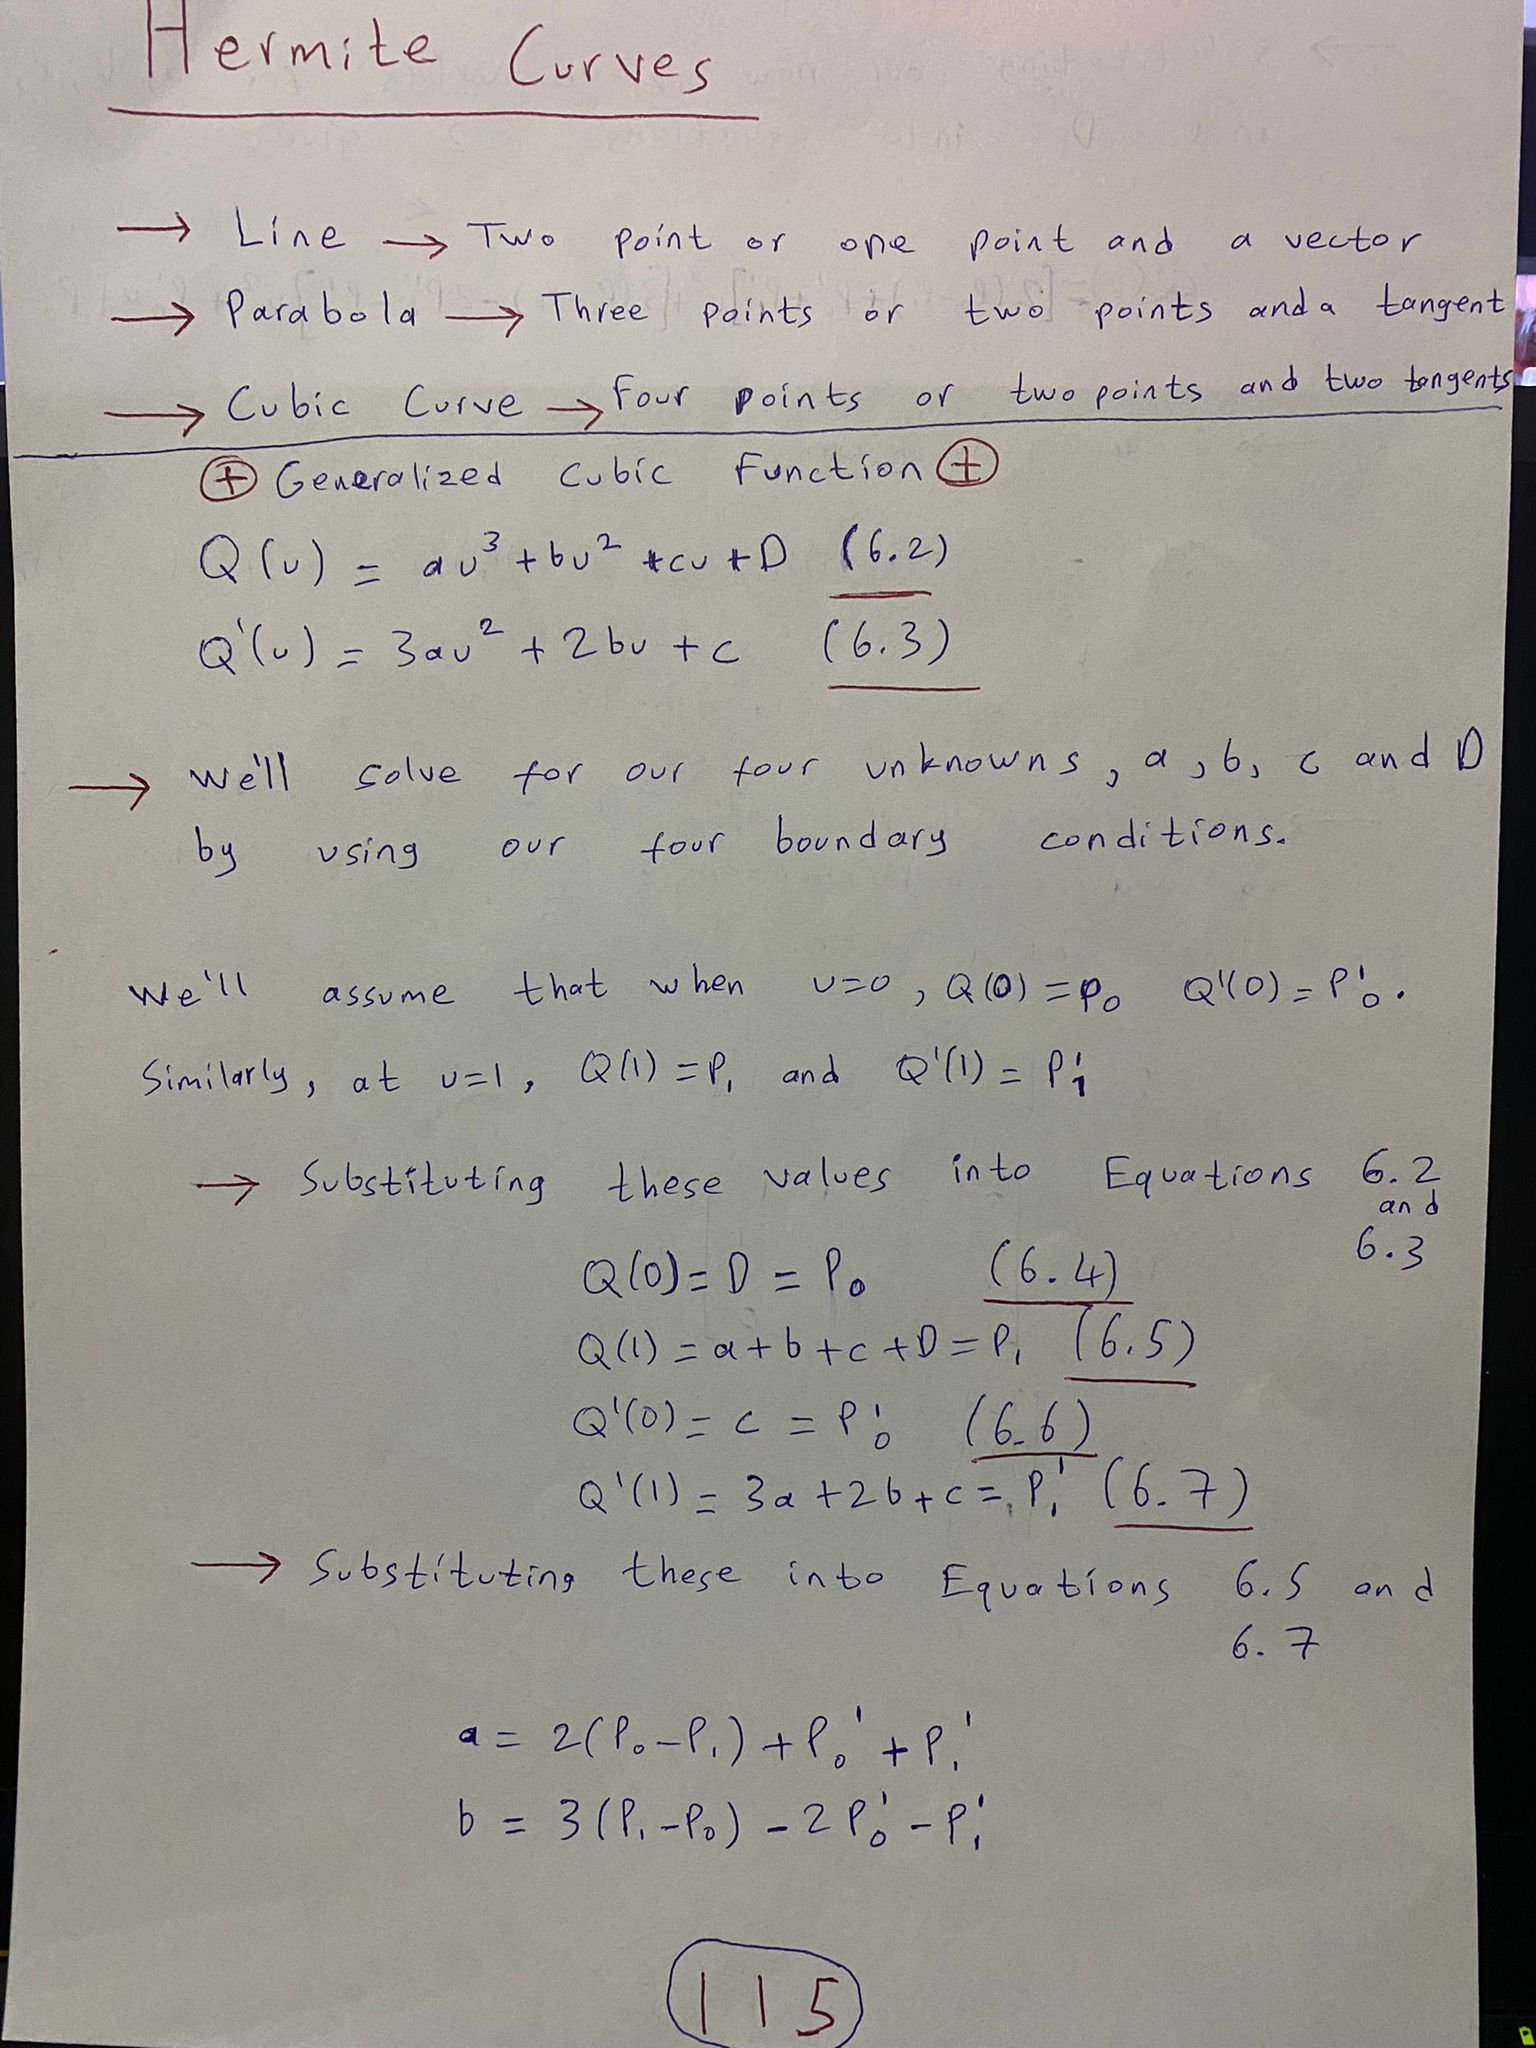 Hermite Curves
→ Line → Two point or one point and a vector
→ Parabola → Three points or two points and a tangent
→ Cubic Curve → Four points or two points and two tangents
⊕ Generalized Cubic Function ⊕
Q(u) = au³ + bu² + cu + D (6.2)
Q'(u) = 3au² + 2bu + c (6.3)
→ We'll solve for our four unknowns, a, b, c and D
by using our four boundary conditions.
We'll assume that when u=0, Q(0) = P₀ Q'(0) = P₀'.
Similarly, at u=1, Q(1) = P₁ and Q'(1) = P₁'
→ Substituting these values into Equations 6.2
and
6.3
Q(0) = D = P₀ (6.4)
Q(1) = a + b + c + D = P₁ (6.5)
Q'(0) = c = P₀' (6.6)
Q'(1) = 3a + 2b + c = P₁' (6.7)
→ Substituting these into Equations 6.5 and
6.7
a = 2(P₀ - P₁) + P₀' + P₁'
b = 3(P₁ - P₀) - 2P₀' - P₁'
115